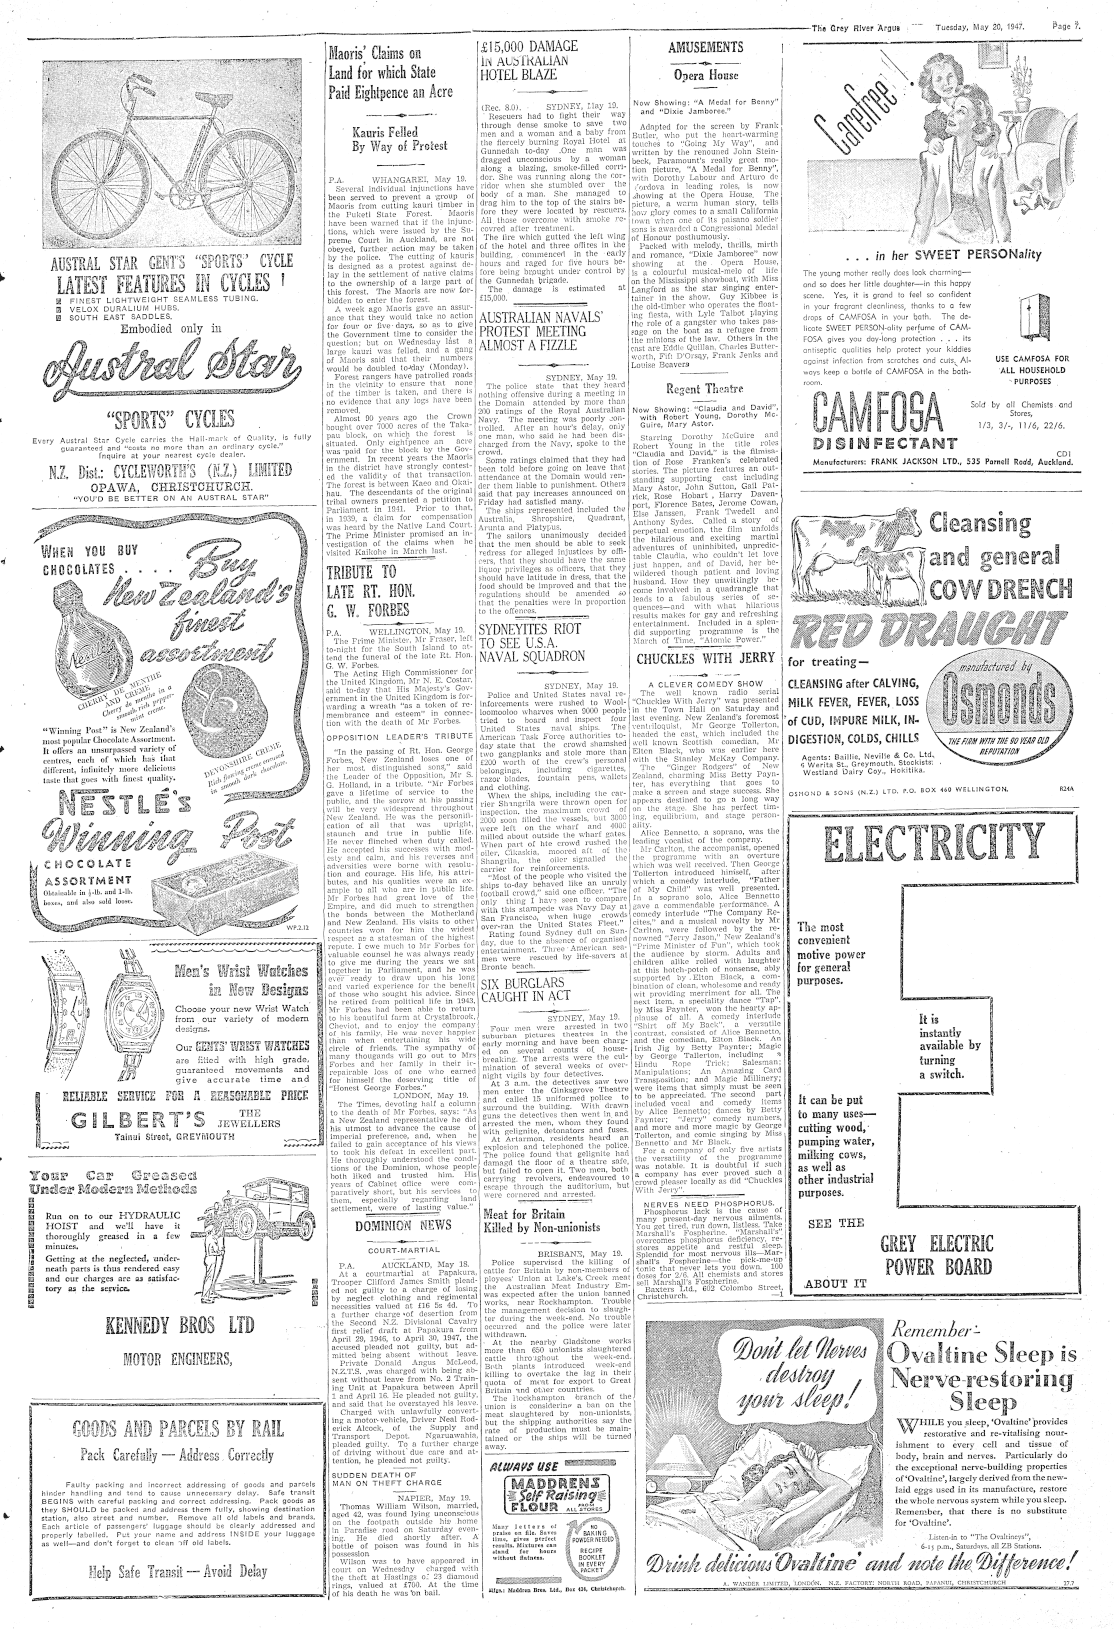 The Grey River Argus
Tuesday, May 20, 1947.
Page 7.
AUSTRAL STAR GENT'S "SPORTS" CYCLE
LATEST FEATURES IN CYCLES !
FINEST LIGHTWEIGHT SEAMLESS TUBING.
VELOX DURALIUM HUBS.
SOUTH EAST SADDLES.
Embodied only in
Austral Star
"SPORTS" CYCLES
Every Austral Star Cycle carries the Hall-mark of Quality, is fully
guaranteed and "costs no more than an ordinary cycle."
Inquire at your nearest cycle dealer.
N.Z. Dist.: CYCLEWORTH'S (N.Z.) LIMITED
OPAWA, CHRISTCHURCH.
"YOU'D BE BETTER ON AN AUSTRAL STAR"
WHEN YOU BUY
CHOCOLATES . . . .
Buy
New Zealand's
finest
assortment
CHERRY DE MENTHE
CREME
DEVONSHIRE CREME
"Winning Post" is New Zealand's
most popular Chocolate Assortment.
It offers an unsurpassed variety of
centres, each of which has that
different, infinitely more delicious
taste that goes with finest quality.
NESTLÉ'S
Winning Post
CHOCOLATE
ASSORTMENT
Obtainable in ½-lb. and 1-lb.
boxes, and also sold loose.
WP.2.12
Men's Wrist Watches
in New Designs
Choose your new Wrist Watch
from our variety of modern
designs.
Our GENTS' WRIST WATCHES
are fitted with high grade,
guaranteed movements and
give accurate time and
RELIABLE SERVICE FOR A REASONABLE PRICE
GILBERT'S THE JEWELLERS
Tainui Street, GREYMOUTH
Your Car Greased
Under Modern Methods
Run on to our HYDRAULIC
HOIST and we'll have it
thoroughly greased in a few
minutes.
Getting at the neglected, under-
neath parts is thus rendered easy
and our charges are as satisfac-
tory as the service.
KENNEDY BROS LTD
MOTOR ENGINEERS,
GOODS AND PARCELS BY RAIL
Pack Carefully — Address Correctly
Faulty packing and incorrect addressing of goods and parcels
hinder handling and tend to cause unnecessary delay. Safe transit
BEGINS with careful packing and correct addressing. Pack goods as
they SHOULD be packed and address them fully, showing destination
station, also street and number. Remove all old labels and brands.
Each article of passengers' luggage should be clearly addressed and
properly labelled. Put your name and address INSIDE your luggage
as well—and don't forget to clean off old labels.
Help Safe Transit — Avoid Delay
Maoris' Claims on
Land for which State
Paid Eightpence an Acre
Kauris Felled
By Way of Protest
P.A. WHANGAREI, May 19.
Several individual injunctions have
been served to prevent a group of
Maoris from cutting kauri timber in
the Puketi State Forest. Maoris
have been warned that if the injunc-
tions, which were issued by the Su-
preme Court in Auckland, are not
obeyed, further action may be taken
by the police. The cutting of kauris
is designed as a protest against de-
lay in the settlement of native claims
to the ownership of a large part of
this forest. The Maoris are now for-
bidden to enter the forest.
A week ago Maoris gave an assur-
ance that they would take no action
for four or five days, so as to give
the Government time to consider the
question; but on Wednesday last a
large kauri was felled, and a gang
of Maoris said that their numbers
would be doubled to-day (Monday).
Forest rangers have patrolled roads
in the vicinity to ensure that none
of the timber is taken, and there is
no evidence that any logs have been
removed.
Almost 90 years ago the Crown
bought over 7000 acres of the Taka-
pau block, on which the forest is
situated. Only eightpence an acre
was paid for the block by the Gov-
ernment. In recent years the Maoris
in the district have strongly contest-
ed the validity of that transaction.
The forest is between Kaeo and Okai-
hau. The descendants of the original
tribal owners presented a petition to
Parliament in 1941. Prior to that,
in 1939, a claim for compensation
was heard by the Native Land Court.
The Prime Minister promised an in-
vestigation of the claims when he
visited Kaikohe in March last.
TRIBUTE TO
LATE RT. HON.
G. W. FORBES
P.A. WELLINGTON, May 19.
The Prime Minister, Mr Fraser, left
to-night for the South Island to at-
tend the funeral of the late Rt. Hon.
G. W. Forbes.
The Acting High Commissioner for
the United Kingdom, Mr N. E. Costar,
said to-day that His Majesty's Gov-
ernment in the United Kingdom is for-
warding a wreath "as a token of re-
membrance and esteem" in connec-
tion with the death of Mr Forbes.
OPPOSITION LEADER'S TRIBUTE
"In the passing of Rt. Hon. George
Forbes, New Zealand loses one of
her most distinguished sons," said
the Leader of the Opposition, Mr S.
G. Holland, in a tribute. "Mr Forbes
gave a lifetime of service to the
public, and the sorrow at his passing
will be very widespread throughout
New Zealand. He was the personifi-
cation of all that was upright,
staunch and true in public life.
He never flinched when duty called.
He accepted his successes with mod-
esty and calm, and his reverses and
adversities were borne with resolu-
tion and courage. His life, his attri-
butes, and his qualities were an ex-
ample to all who are in public life.
Mr Forbes had great love of the
Empire, and did much to strengthen
the bonds between the Motherland
and New Zealand. His visits to other
countries won for him the widest
respect as a statesman of the highest
repute. I owe much to Mr Forbes for
valuable counsel he was always ready
to give me during the years we sat
together in Parliament, and he was
ever ready to draw upon his long
and varied experience for the benefit
of those who sought his advice. Since
he retired from political life in 1943,
Mr Forbes had been able to return
to his beautiful farm at Crystalbrook,
Cheviot, and to enjoy the company
of his family. He was never happier
than when entertaining his wide
circle of friends. The sympathy of
many thousands will go out to Mrs
Forbes and her family in their ir-
repairable loss of one who earned
for himself the deserving title of
"Honest George Forbes."
LONDON, May 19.
The Times, devoting half a column
to the death of Mr Forbes, says: "As
a New Zealand representative he did
his utmost to advance the cause of
Imperial preference, and, when he
failed to gain acceptance of his views
to took his defeat in excellent part.
He thoroughly understood the condi-
tions of the Dominion, whose people
both liked and trusted him. His
years of Cabinet office were com-
paratively short, but his services to
them, especially regarding land
settlement, were of lasting value."
DOMINION NEWS
COURT-MARTIAL
P.A. AUCKLAND, May 18.
At a courtmartial at Papakura,
Trooper Clifford James Smith plead-
ed not guilty to a charge of losing
by neglect clothing and regimental
necessities valued at £16 5s 4d. To
a further charge of desertion from
the Second N.Z. Divisional Cavalry
first relief draft at Papakura from
April 29, 1946, to April 30, 1947, the
accused pleaded not guilty, but ad-
mitted being absent without leave.
Private Donald Angus McLeod,
N.Z.T.S., was charged with being ab-
sent without leave from No. 2 Train-
ing Unit at Papakura between April
1 and April 16. He pleaded not guilty,
and said that he overstayed his leave.
Charged with unlawfully convert-
ing a motor-vehicle, Driver Neal Rod-
erick Alcock, of the Supply and
Transport Depot, Ngaruawahia,
pleaded guilty. To a further charge
of driving without due care and at-
tention, he pleaded not guilty.
SUDDEN DEATH OF
MAN ON THEFT CHARGE
NAPIER, May 19.
Thomas William Wilson, married,
aged 42, was found lying unconscious
on the footpath outside his home
in Paradise road on Saturday even-
ing. He died shortly after. A
bottle of poison was found in his
possession
Wilson was to have appeared in
court on Wednesday charged with
the theft at Hastings of 23 diamond
rings, valued at £700. At the time
of his death he was on bail.
£15,000 DAMAGE
IN AUSTRALIAN
HOTEL BLAZE
(Rec. 8.0). SYDNEY, May 19.
Rescuers had to fight their way
through dense smoke to save two
men and a woman and a baby from
the fiercely burning Royal Hotel at
Gunnedah to-day .One man was
dragged unconscious by a woman
along a blazing, smoke-filled corri-
dor. She was running along the cor-
ridor when she stumbled over the
body of a man. She managed to
drag him to the top of the stairs be-
fore they were located by rescuers.
All those overcome with smoke re-
covred after treatment.
The fire which gutted the left wing
of the hotel and three offites in the
building, commenced in the early
hours and raged for five hours be-
fore being brought under control by
the Gunnedah brigade.
The damage is estimated at
£15,000.
AUSTRALIAN NAVALS'
PROTEST MEETING
ALMOST A FIZZLE
SYDNEY, May 19.
The police state that they heard
nothing offensive during a meeting in
the Domain attended by more than
200 ratings of the Royal Australian
Navy. The meeting was poorly con-
trolled. After an hour's delay, only
one man, who said he had been dis-
charged from the Navy, spoke to the
crowd.
Some ratings claimed that they had
been told before going on leave that
attendance at the Domain would ren-
der them liable to punishment. Others
said that pay increases announced on
Friday had satisfied many.
The ships represented included the
Australia, Shropshire, Quadrant,
Arunta and Platypus.
The sailors unanimously decided
that the men should be able to seek
redress for alleged injustices by offi-
cers, that they should have the same
liquor privileges as officers, that they
should have latitude in dress, that the
food should be improved and that the
regulations should be amended so
that the penalties were in proportion
to the offences.
SYDNEYITES RIOT
TO SEE U.S.A.
NAVAL SQUADRON
SYDNEY, May 19.
Police and United States naval re-
inforcements were rushed to Wool-
loomooloo wharves when 5000 people
tried to board and inspect four
United States naval ships. The
American Task Force authorities to-
day state that the crowd shamshed
two gangplanks and stole more than
£200 worth of the crew's personal
belongings, including cigarettes,
razor blades, fountain pens, wallets
and clothing.
When the ships, including the car-
rier Shangrila were thrown open for
inspection, the maximum crowd of
2000 soon filled the vessels, but 3000
were left on the wharf and 4000
milled about outside the wharf gates.
When part of hte crowd rushed the
oiler, Cikaskia, moored aft of the
Shangrila, the oiler signalled the
carrier for reinforcements.
"Most of the people who visited the
ships to-day behaved like an unruly
football crowd," said one officer. "The
only thing I have seen to compare
with this stampede was Navy Day at
San Francisco, when huge crowds
over-ran the United States Fleet."
Rating found Sydney dull on Sun-
day, due to the absence of organised
entertainment. Three American sea-
men were rescued by life-savers at
Bronte beach.
SIX BURGLARS
CAUGHT IN ACT
SYDNEY, May 19.
Four men were arrested in two
suburban pictures theatres in the
early morning and have been charg-
ed on several counts of house-
breaking. The arrests were the cul-
mination of several weeks of over-
night vigils by four detectives.
At 3 a.m. the detectives saw two
men enter the Ginksgrove Theatre
and called 15 uniformed police to
surround the building. With drawn
guns the detectives then went in and
arrested the men, whom they found
with gelignite, detonators and fuses.
At Artarmon, residents heard an
explosion and telephoned the police.
The police found that gelignite had
damagd the floor of a theatre safe,
but failed to open it. Two men, both
carrying revolvers, endeavoured to
escape through the auditorium, but
were cornered and arrested.
Meat for Britain
Killed by Non-unionists
BRISBANE, May 19.
Police supervisd the killing of
cattle for Britain by non-members of
ployees' Union at Lake's Creek meat
the Australian Meat Industry Em-
was expected after the union banned
works, near Rockhampton. Trouble
the management decision to slaugh-
ter during the week-end. No trouble
occurred and the police were later
withdrawn.
At the nearby Gladstone works
more than 650 unionists slaughtered
cattle throughout the week-end.
Both plants introduced week-end
killing to overtake the lag in their
quota of meat for export to Great
Britain and other countries.
The Rockhampton branch of the
union is considering a ban on the
meat slaughtered by non-unionists,
but the shipping authorities say the
rate of production must be main-
tained or the ships will be turned
away.
ALWAYS USE
MADDRENS
Self Raising
FLOUR
FROM ALL STORES
Many letters of
praise on file. Saves
time, gives perfect
results. Mixtures can
stand for hours
without flatness.
NO
BAKING
POWDER NEEDED
RECIPE
BOOKLET
IN EVERY
PACKET
Mfgrs: Maddren Bros. Ltd., Box 420, Christchurch.
AMUSEMENTS
Opera House
Now Showing: "A Medal for Benny"
and "Dixie Jamboree."
Adapted for the screen by Frank
Butler, who put the heart-warming
touches to "Going My Way", and
written by the renouned John Stein-
beck, Paramount's really great mo-
tion picture, "A Medal for Benny",
with Dorothy Labour and Arturo de
Cordova in leading roles, is now
showing at the Opera House. The
picture, a warm human story, tells
how glory comes to a small California
town when one of its paisano soldier
sons is awarded a Congressional Medal
of Honour posthumously.
Packed with melody, thrills, mirth
and romance, "Dixie Jamboree" now
showing at the Opera House,
is a colourful musical-melo of life
on the Mississippi showboat, with Miss
Langford as the star singing enter-
tainer in the show. Guy Kibbee is
the old-timer who operates the float-
ing fiesta, with Lyle Talbot playing
the role of a gangster who takes pas-
sage on the boat as a refugee from
the minions of the law. Others in the
cast are Eddie Quillan, Charles Butter-
worth, Fifi D'Orsay, Frank Jenks and
Louise Beavers
Regent Theatre
Now Showing: "Claudia and David",
with Robert Young, Dorothy Mc-
Guire, Mary Astor.
Starring Dorothy McGuire and
Robert Young in the title roles
"Claudia and David," is the filmisa-
tion of Rose Franken's celebrated
stories. The picture features an out-
standing supporting cast including
Mary Astor, John Sutton, Gail Pat-
rick, Rose Hobart, Harry Daven-
port, Florence Bates, Jerome Cowan,
Else Janssen, Frank Twedell and
Anthony Sydes. Called a story of
perpetual emotion, the film unfolds
the hilarious and exciting martial
adventures of uninhibited, unpredic-
table Claudia, who couldn't let love
just happen, and of David, her be-
wildered though patient and loving
husband. How they unwittingly be-
come involved in a quadrangle that
leads to a fabulous series of se-
quences—and with what hilarious
results makes for gay and refreshing
entertainment. Included in a splen-
did supporting programme is the
March of Time, "Atomic Power."
CHUCKLES WITH JERRY
A CLEVER COMEDY SHOW
The well known radio serial
"Chuckles With Jerry" was presented
in the Town Hall on Saturday and
last evening. New Zealand's foremost
ventriloquist, Mr George Tollerton,
headed the cast, which included the
well known Scottish comedian, Mr
Elton Black, who was earlier here
with the Stanley McKay Company.
The "Ginger Rodgers" of New
Zealand, charming Miss Betty Payn-
ter, has everything that goes to
make a screen and stage success. She
appears destined to go a long way
on the stage. She has perfect tim-
ing, equilibrium, and stage person-
ality.
Alice Bennetto, a soprano, was the
leading vocalist of the company.
Mr Carlton, the accompanist, opened
the programme with an overture
which was well received. Then George
Tollerton introduced himself, after
which a comedy interlude, "Father
of My Child" was well presented.
In a soprano solo, Alice Bennetto
gave a commendable performance. A
comedy interlude "The Company Re-
cites," and a musical novelty by Mr
Carlton, were followed by the re-
nowned "Jerry Jason," New Zealand's
"Prime Minister of Fun", which took
the audience by storm. Adults and
children alike rolled with laughter
at this hotch-potch of nonsense, ably
supported by Elton Black, a com-
bination of clean, wholesome and ready
wit providing merriment for all. The
next item, a speciality dance "Tap",
by Miss Paynter, won the hearty ap-
plause of all. A comedy interlude
"Shirt off My Back", a versatile
contrast, consisted of Alice Bennetto,
and the comedian, Elton Black. An
Irish Jig by Betty Paynter; Magic
by George Tallerton, including a
Hindu Rope Trick: Salesman;
Manipulations; An Amazing Card
Transposition; and Magic Millinery;
were items that simply must be seen
to be appreciated. The second part
included vocal and comedy items
by Alice Bennetto; dances by Betty
Paynter; "Jerry" comedy numbers,
and more and more magic by George
Tollerton, and comic singing by Miss
Bennetto and Mr Black.
For a company of only five artists
the versatility of the programme
was notable. It is doubtful if such
a company has ever proved such a
crowd pleaser locally as did "Chuckles
With Jerry".
NERVES NEED PHOSPHORUS.
Phosphorus lack is the cause of
many present-day nervous ailments.
You get tired, run down, listless. Take
Marshall's Fospherine. "Marshall's"
overcomes phosphorus deficiency, re-
stores appetite and restful sleep.
Splendid for most nervous ills—Mar-
shall's Fospherine—the pick-me-up
tonic that never lets you down. 100
doses for 2/6. All chemists and stores
sell Marshall's Fospherine.
Baxters Ltd., 602 Colombo Street,
Christchurch. —1
Carefree!!
. . . in her SWEET PERSONality
The young mother really does look charming—
and so does her little daughter—in this happy
scene. Yes, it is grand to feel so confident
in your fragrant cleanliness, thanks to a few
drops of CAMFOSA in your bath. The de-
licate SWEET PERSON-ality perfume of CAM-
FOSA gives you day-long protection . . . Its
antiseptic qualities help protect your kiddies
against infection from scratches and cuts. Al-
ways keep a bottle of CAMFOSA in the bath-
room.
USE CAMFOSA FOR
ALL HOUSEHOLD
PURPOSES
CAMFOSA
DISINFECTANT
Sold by all Chemists and
Stores,
1/3, 3/-, 11/6, 22/6.
CD1
Manufacturers: FRANK JACKSON LTD., 535 Parnell Road, Auckland.
Cleansing
and general
COW DRENCH
RED DRAUGHT
for treating—
CLEANSING after CALVING,
MILK FEVER, FEVER, LOSS
of CUD, IMPURE MILK, IN-
DIGESTION, COLDS, CHILLS
manufactured by
Osmonds
THE FIRM WITH THE 90 YEAR OLD
REPUTATION
Agents: Baillie, Neville & Co. Ltd.,
6 Werita St., Greymouth, Stockists:
Westland Dairy Coy., Hokitika.
OSMOND & SONS (N.Z.) LTD. P.O. BOX 460 WELLINGTON.
R24A
ELECTRICITY
The most
convenient
motive power
for general
purposes.
It is
instantly
available by
turning
a switch.
It can be put
to many uses—
cutting wood,
pumping water,
milking cows,
as well as
other industrial
purposes.
SEE THE
GREY ELECTRIC
POWER BOARD
ABOUT IT
Don't let Nerves
destroy
your sleep!
Remember-
Ovaltine Sleep is
Nerve-restoring
Sleep
WHILE you sleep, 'Ovaltine' provides
restorative and re-vitalising nour-
ishment to every cell and tissue of
body, brain and nerves. Particularly do
the exceptional nerve-building properties
of 'Ovaltine', largely derived from the new-
laid eggs used in its manufacture, restore
the whole nervous system while you sleep.
Remember, that there is no substitute
for 'Ovaltine'.
Listen-in to "The Ovaltineys",
6-15 p.m., Saturdays, all ZB Stations.
Drink delicious 'Ovaltine' and note the Difference!
A. WANDER LIMITED, LONDON. N.Z. FACTORY: NORTH ROAD, PAPANUI, CHRISTCHURCH
37.7